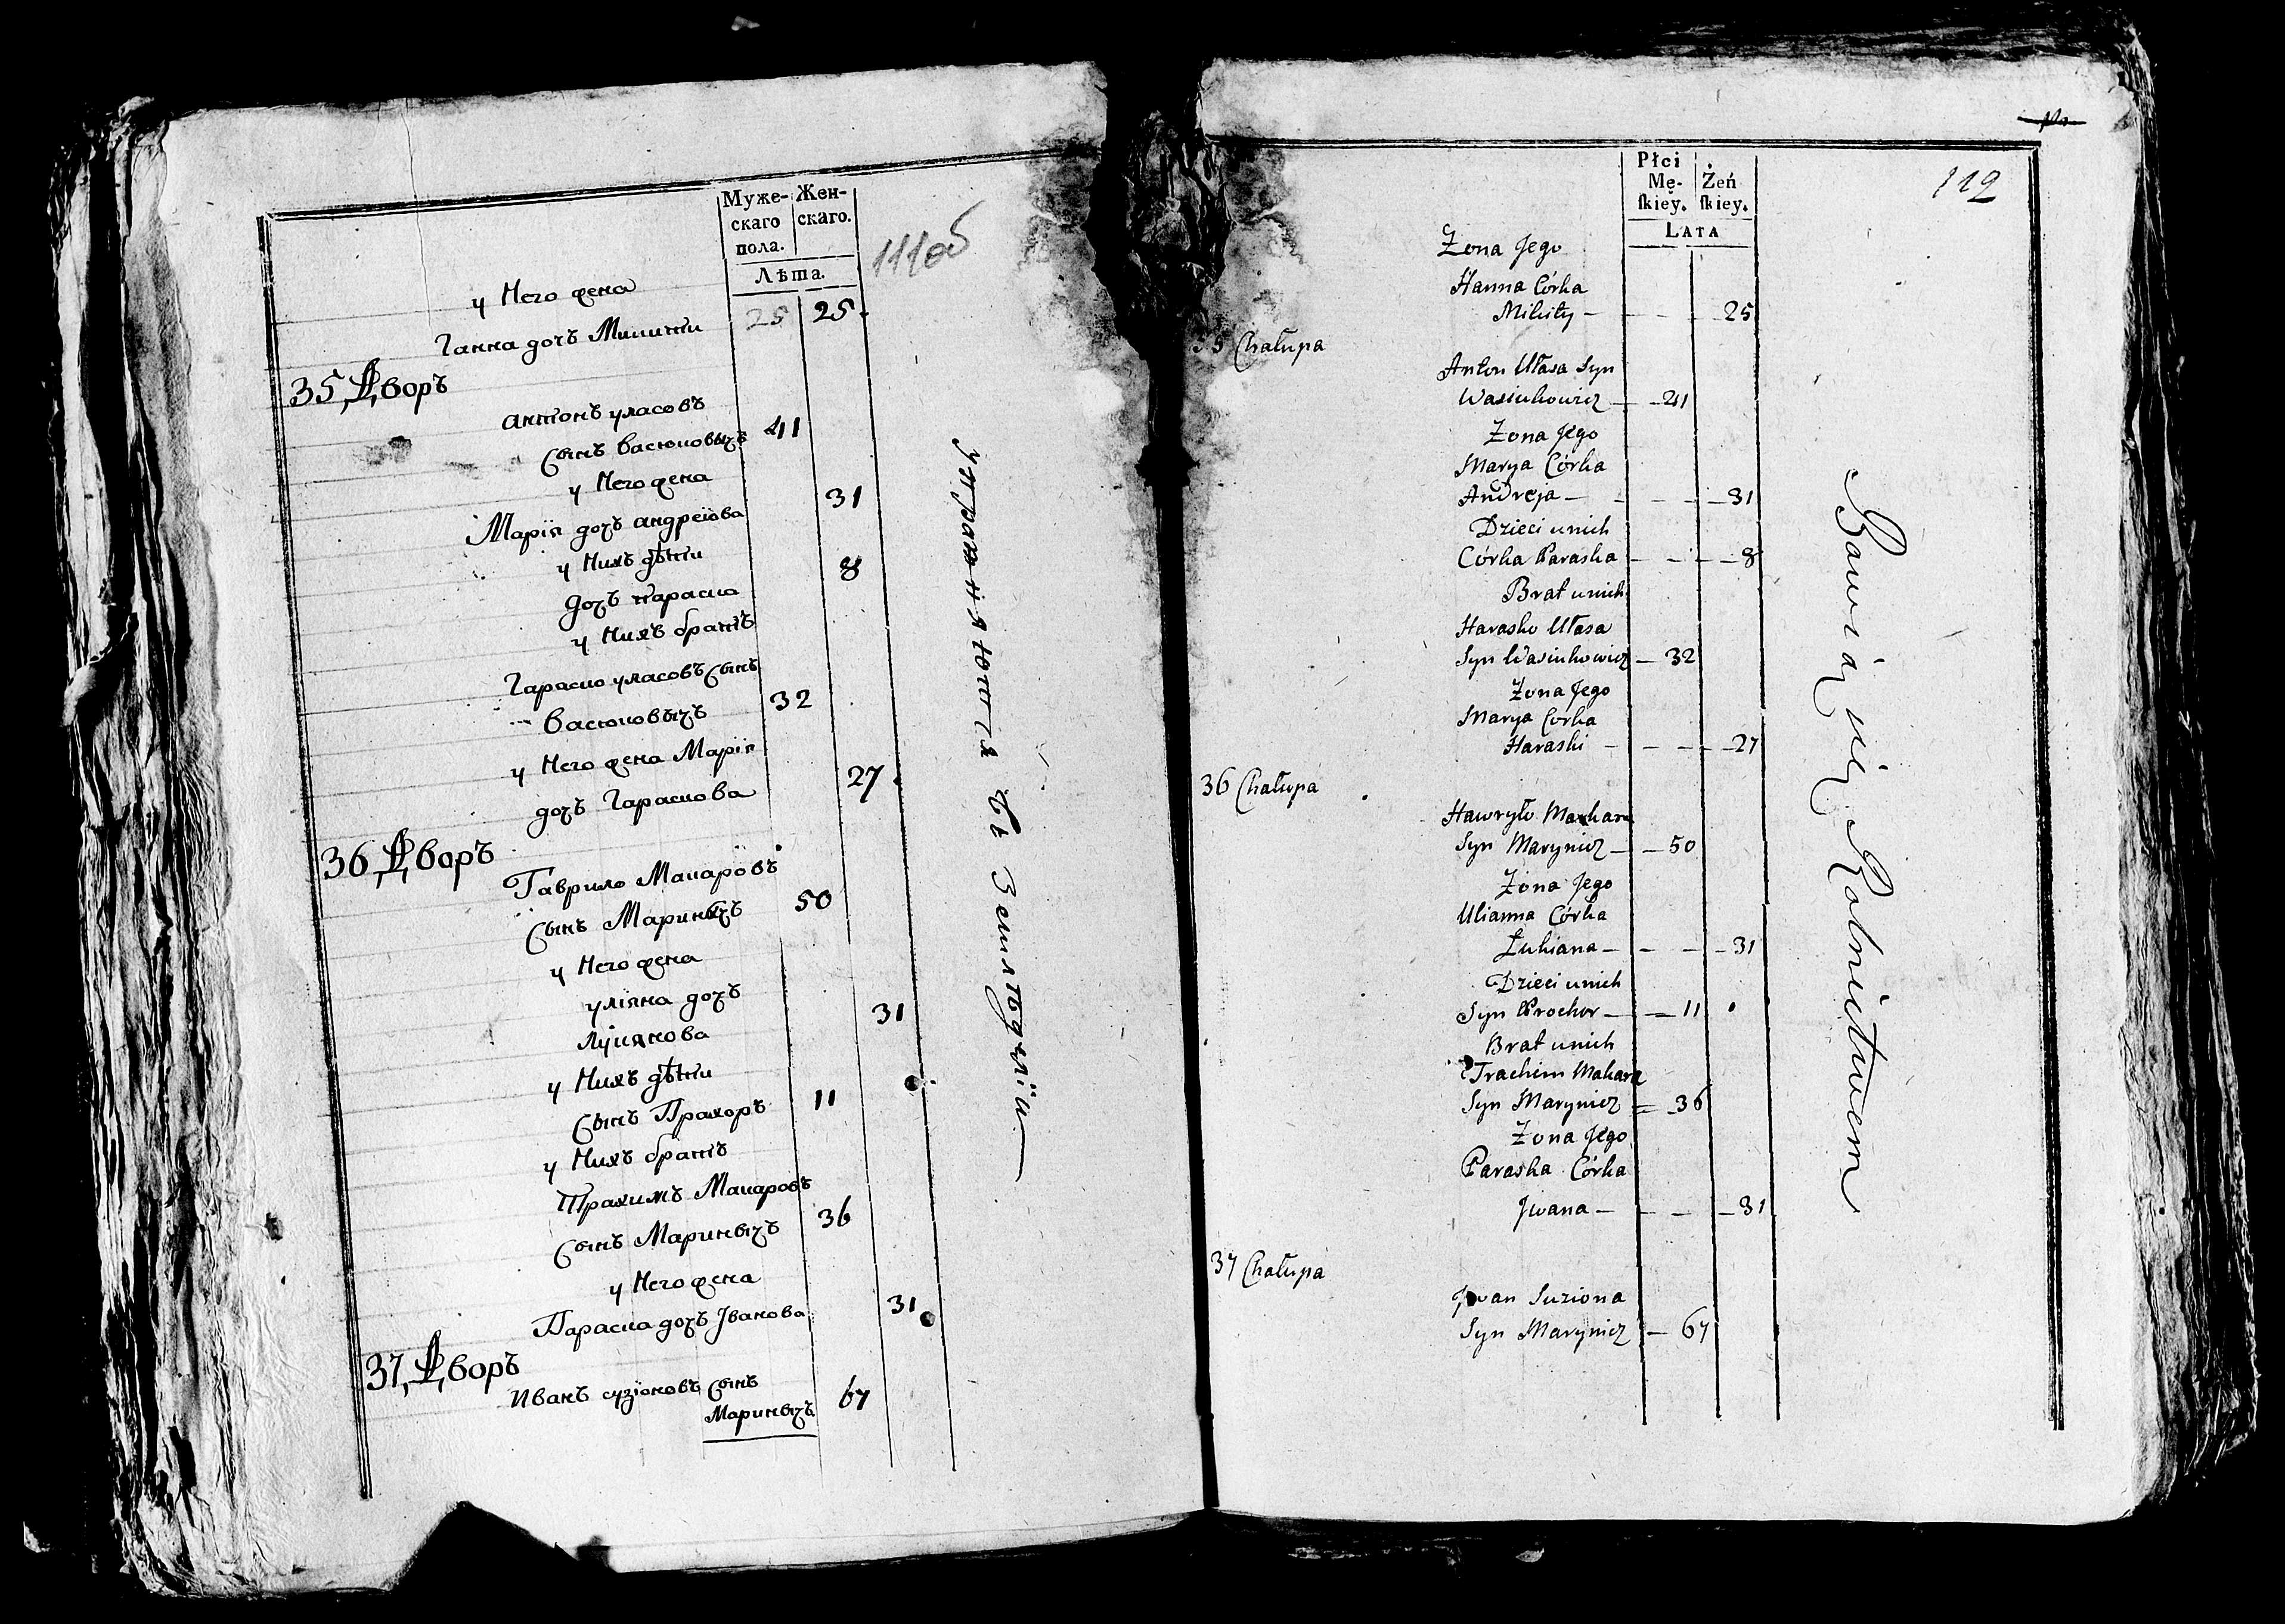 Муже-
скаго
пола.
Жен-
скаго.
Лѣта.
111об
у Него жена
Ганна дочъ Микити 25 25
35, Дворъ
Антонъ уласовъ
Сынъ Васюковичъ 41
у Него жена
Марія дочъ андреіова 31
у Нихъ дѣти
дочъ Параска 8
у Нихъ братъ
Гараско уласовъ Сынъ
Васюковичъ 32
у Него жена Марія
дочъ Гараскова 27
36, Дворъ
Гаврило Макаровъ
Сынъ Мариничъ 50
у Него жена
уліяна дочъ
Лукянова 31
у Нихъ дѣти
Сынъ Прахоръ 11
у Нихъ братъ
Трахимъ Макаровъ
Сынъ Мариничъ 36
у Него жена
Параска дочъ Іванова 31
37, Дворъ
Иванъ сузіоновъ Сынъ
Мариничъ 67
упражняются въ Земледѣліи
Płci
Mę-
ſkiey.
Żeń
ſkiey.
LATA
112
Żona Jego
Hanna Córka
Mikity 25
35 Chałupa
Anton Ułasa Syn
Wasiukowicz 41
Żona Jego
Marya Córka
Andreja 31
Dzieci u nich
Córka Paraska 8
Brat u nich
Harasko Ułasa
Syn Wasiukowicz 32
Żona Jego
Marya Corka
Haraski 27
36 Chałupa
Hawryło Makara
Syn Marynicz 50
Żona Jego
Ulianna Córka
Łukiana 31
Dzieci u nich
Syn Prochor 11
Brat u nich
Trachim Makara
Syn Marynicz 36
Żona Jego
Paraska Córka
Jwana 31
37 Chałupa
Jwan Suziona
Syn Marynicz 67
Bawią się Rolnictwem